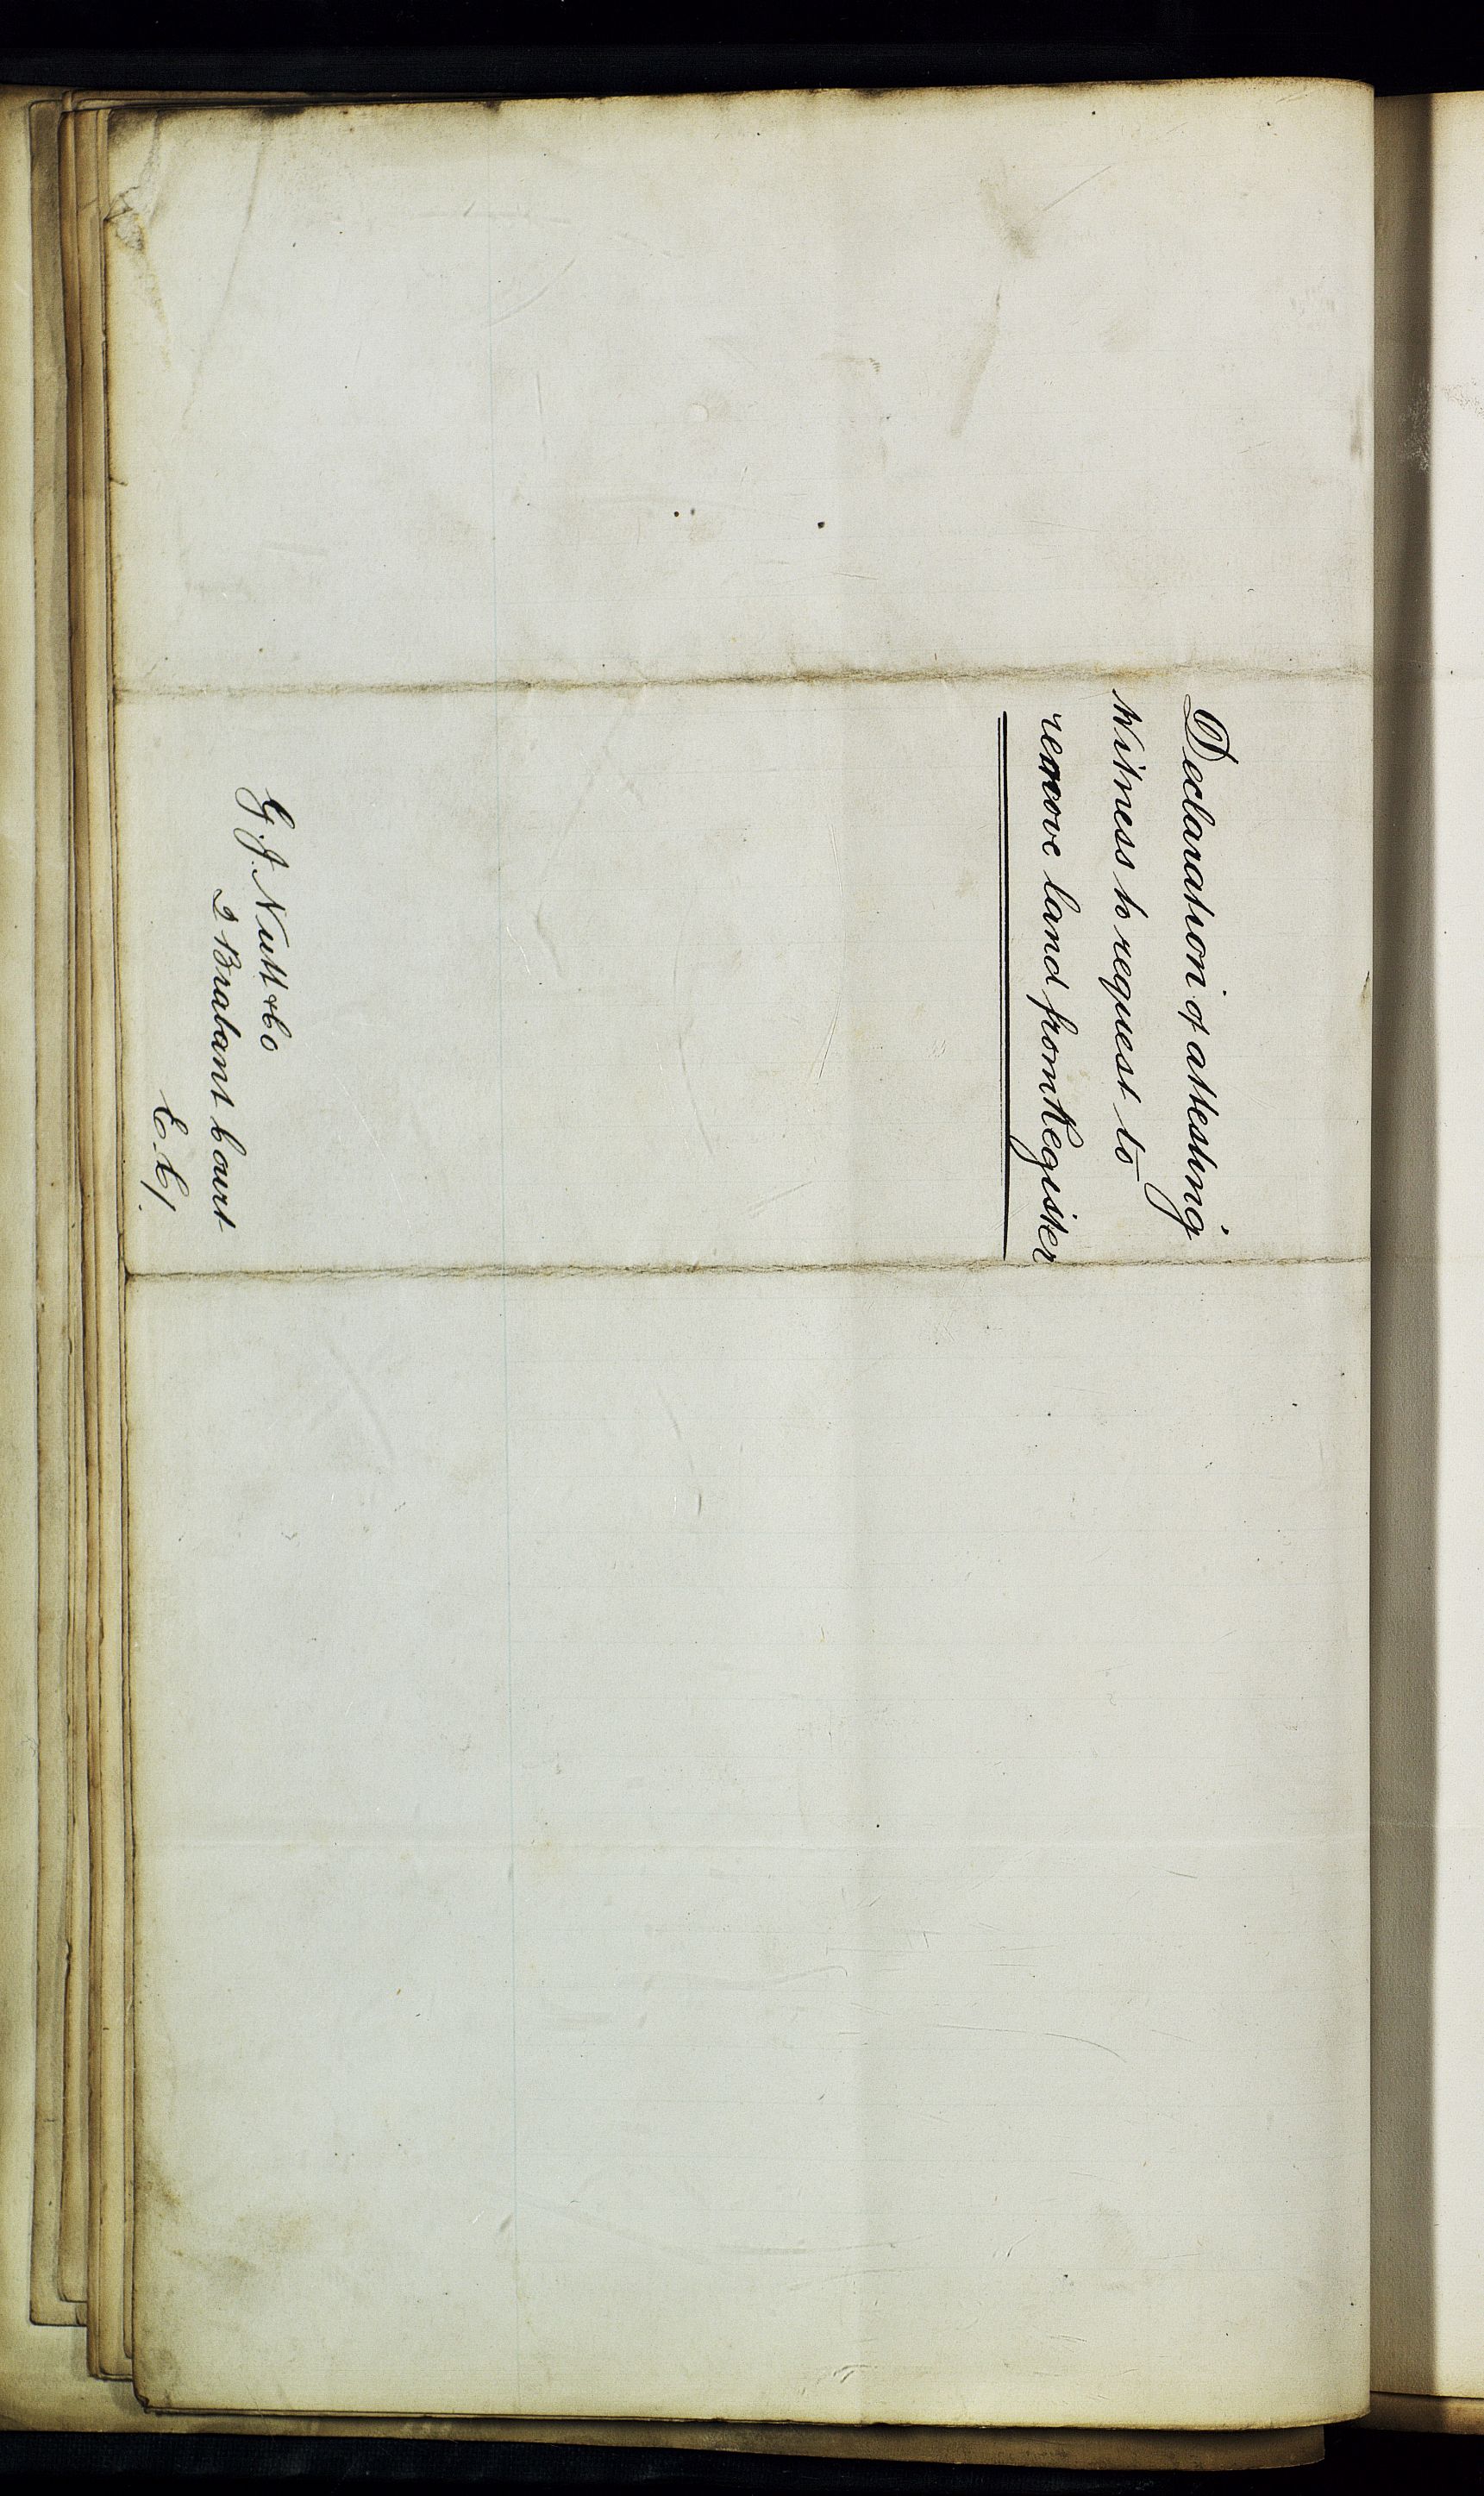 Declaration of attesting
Witness to request to
remove land from Register
G. J. Nutt & Co
2 Brabant Court
E.C.